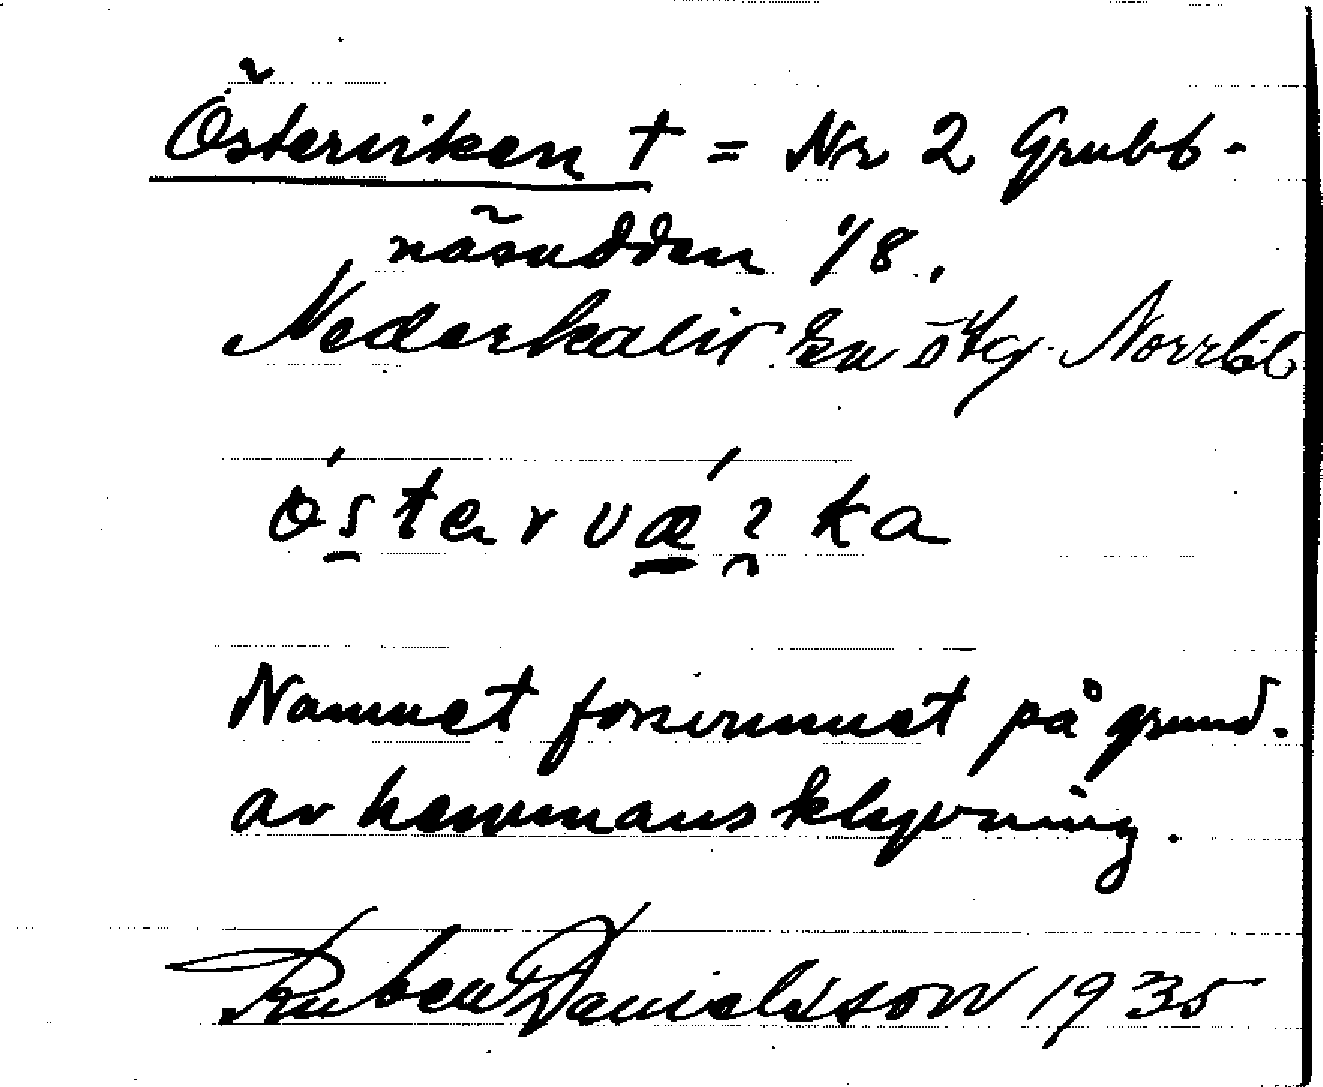 Österviken † = Nr 2 Grubb-
näsudden 1/8.
Nederkalix sn ö tg. Norrb.
Namnet försvunnet på grund.
av hemmansklyvning.
Ruben Danielsson 1935